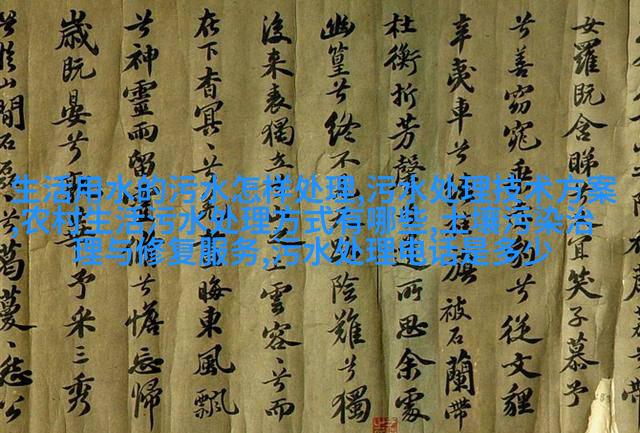 生活用水的污水怎样处理,污水处理技术方案
,农村生活污水处理方式有哪些,土壤污染治
理与修复服务,污水处理电话是多少
女羅既含睇宜笑子慕予
兮善窈窕乘兮從文貍
辛夷車兮旗被石蘭帶
杜衡折芳馨所思余處
幽篁兮終不險難兮獨
後來表獨立上雲容容兮而
在下杳冥冥晦東風飄
兮神靈雨留兮憺忘歸
歲既晏兮予采三秀
兮於山間石磊葛蔓蔓怨公